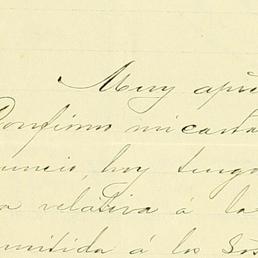 Muy apre
Confirmo mi carta
uncio, hoy tengo
a relativa á la
mitida á los Sres